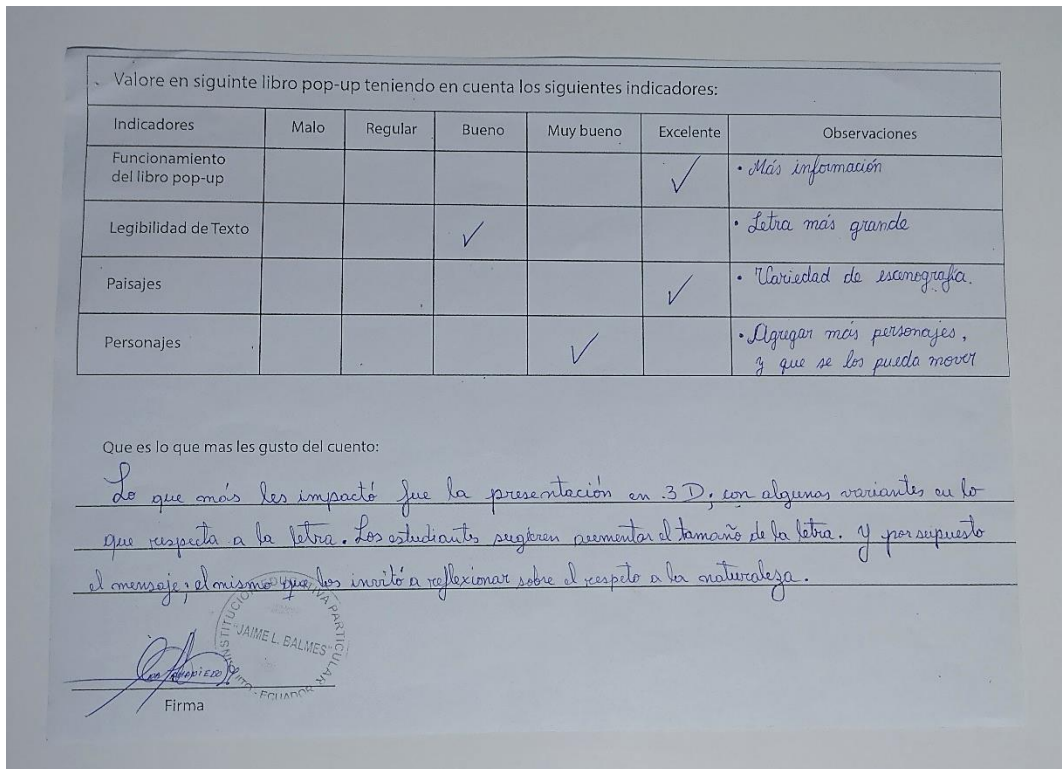 Valore en siguinte libro pop-up teniendo en cuenta los siguientes indicadores:
Indicadores Malo Regular Bueno Muy bueno Excelente Observaciones
Funcionamiento
del libro pop-up ✓ • Más información
Legibilidad de Texto ✓ • Letra más grande
Paisajes ✓ • Variedad de escenografía.
Personajes ✓ • Agregar más personajes,
y que se los pueda mover
Que es lo que mas les gusto del cuento:
Lo que más les impactó fue la presentación en 3 D; con algunas variantes en lo
que respecta a la letra. Los estudiantes sugieren aumentar el tamaño de la letra. Y por supuesto
el mensaje; el mismo que los invitó a reflexionar sobre el respeto a la naturaleza.
PARTICULAR
"JAIME L. BALMES"
QUITO - ECUADOR
Firma